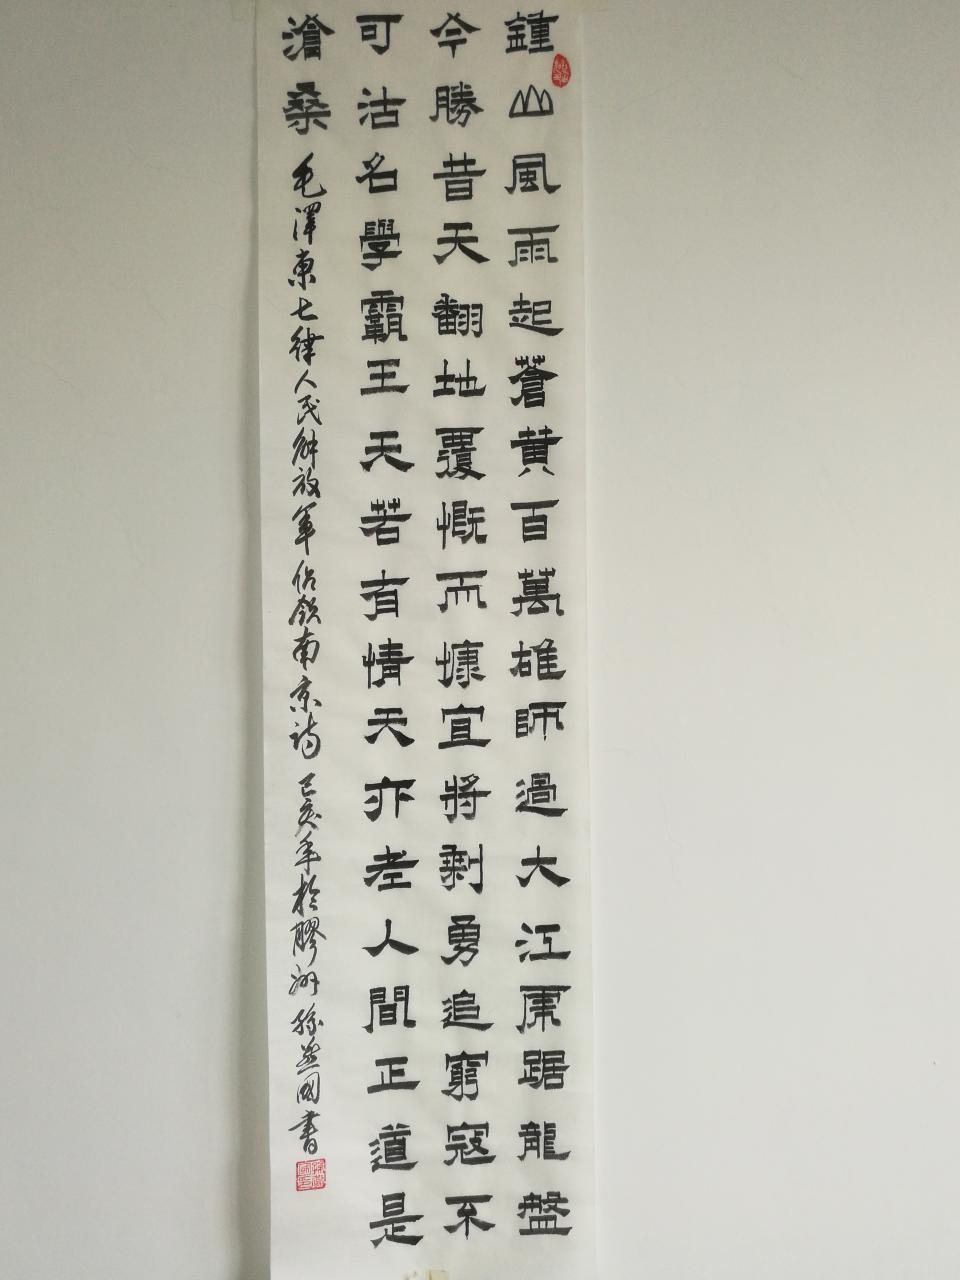 鍾山風雨起蒼黄百萬雄師過大江虎踞龍盤
今勝昔天翻地覆慨而慷宜將剩勇追窮寇不
可沽名學霸王天若有情天亦老人間正道是
滄桑 毛澤東七律人民解放軍佔領南京詩 己亥年於膠州 國書